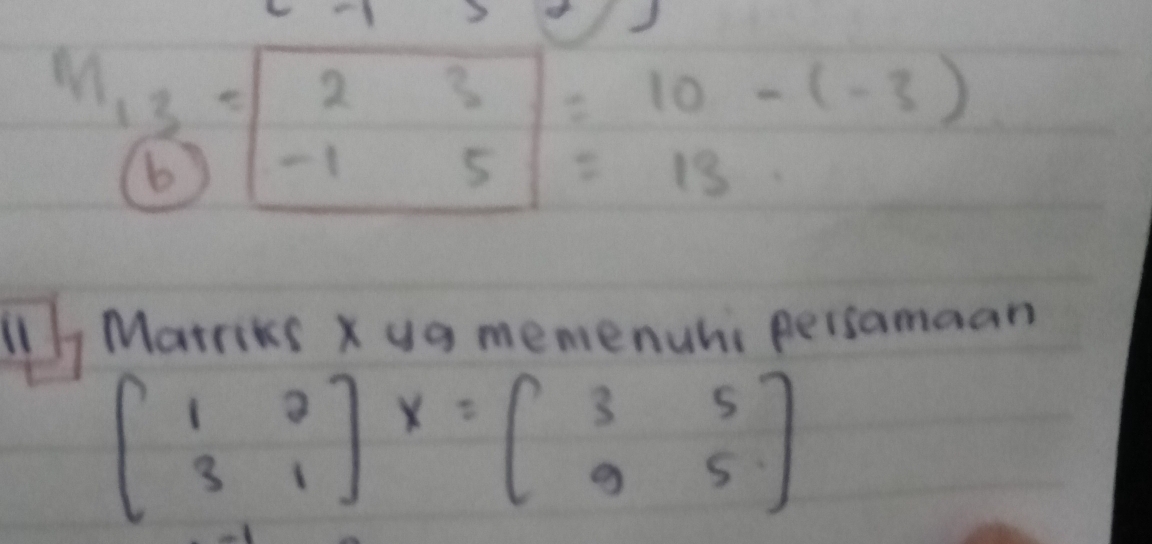 M13 = 2 3 = 10 - (-3)
b -1 5 = 13.
11 Matriks X yg memenuhi persamaan
[ 1 2 ] X = [ 3 5 ]
[ 3 1 ] [ 9 5 ]